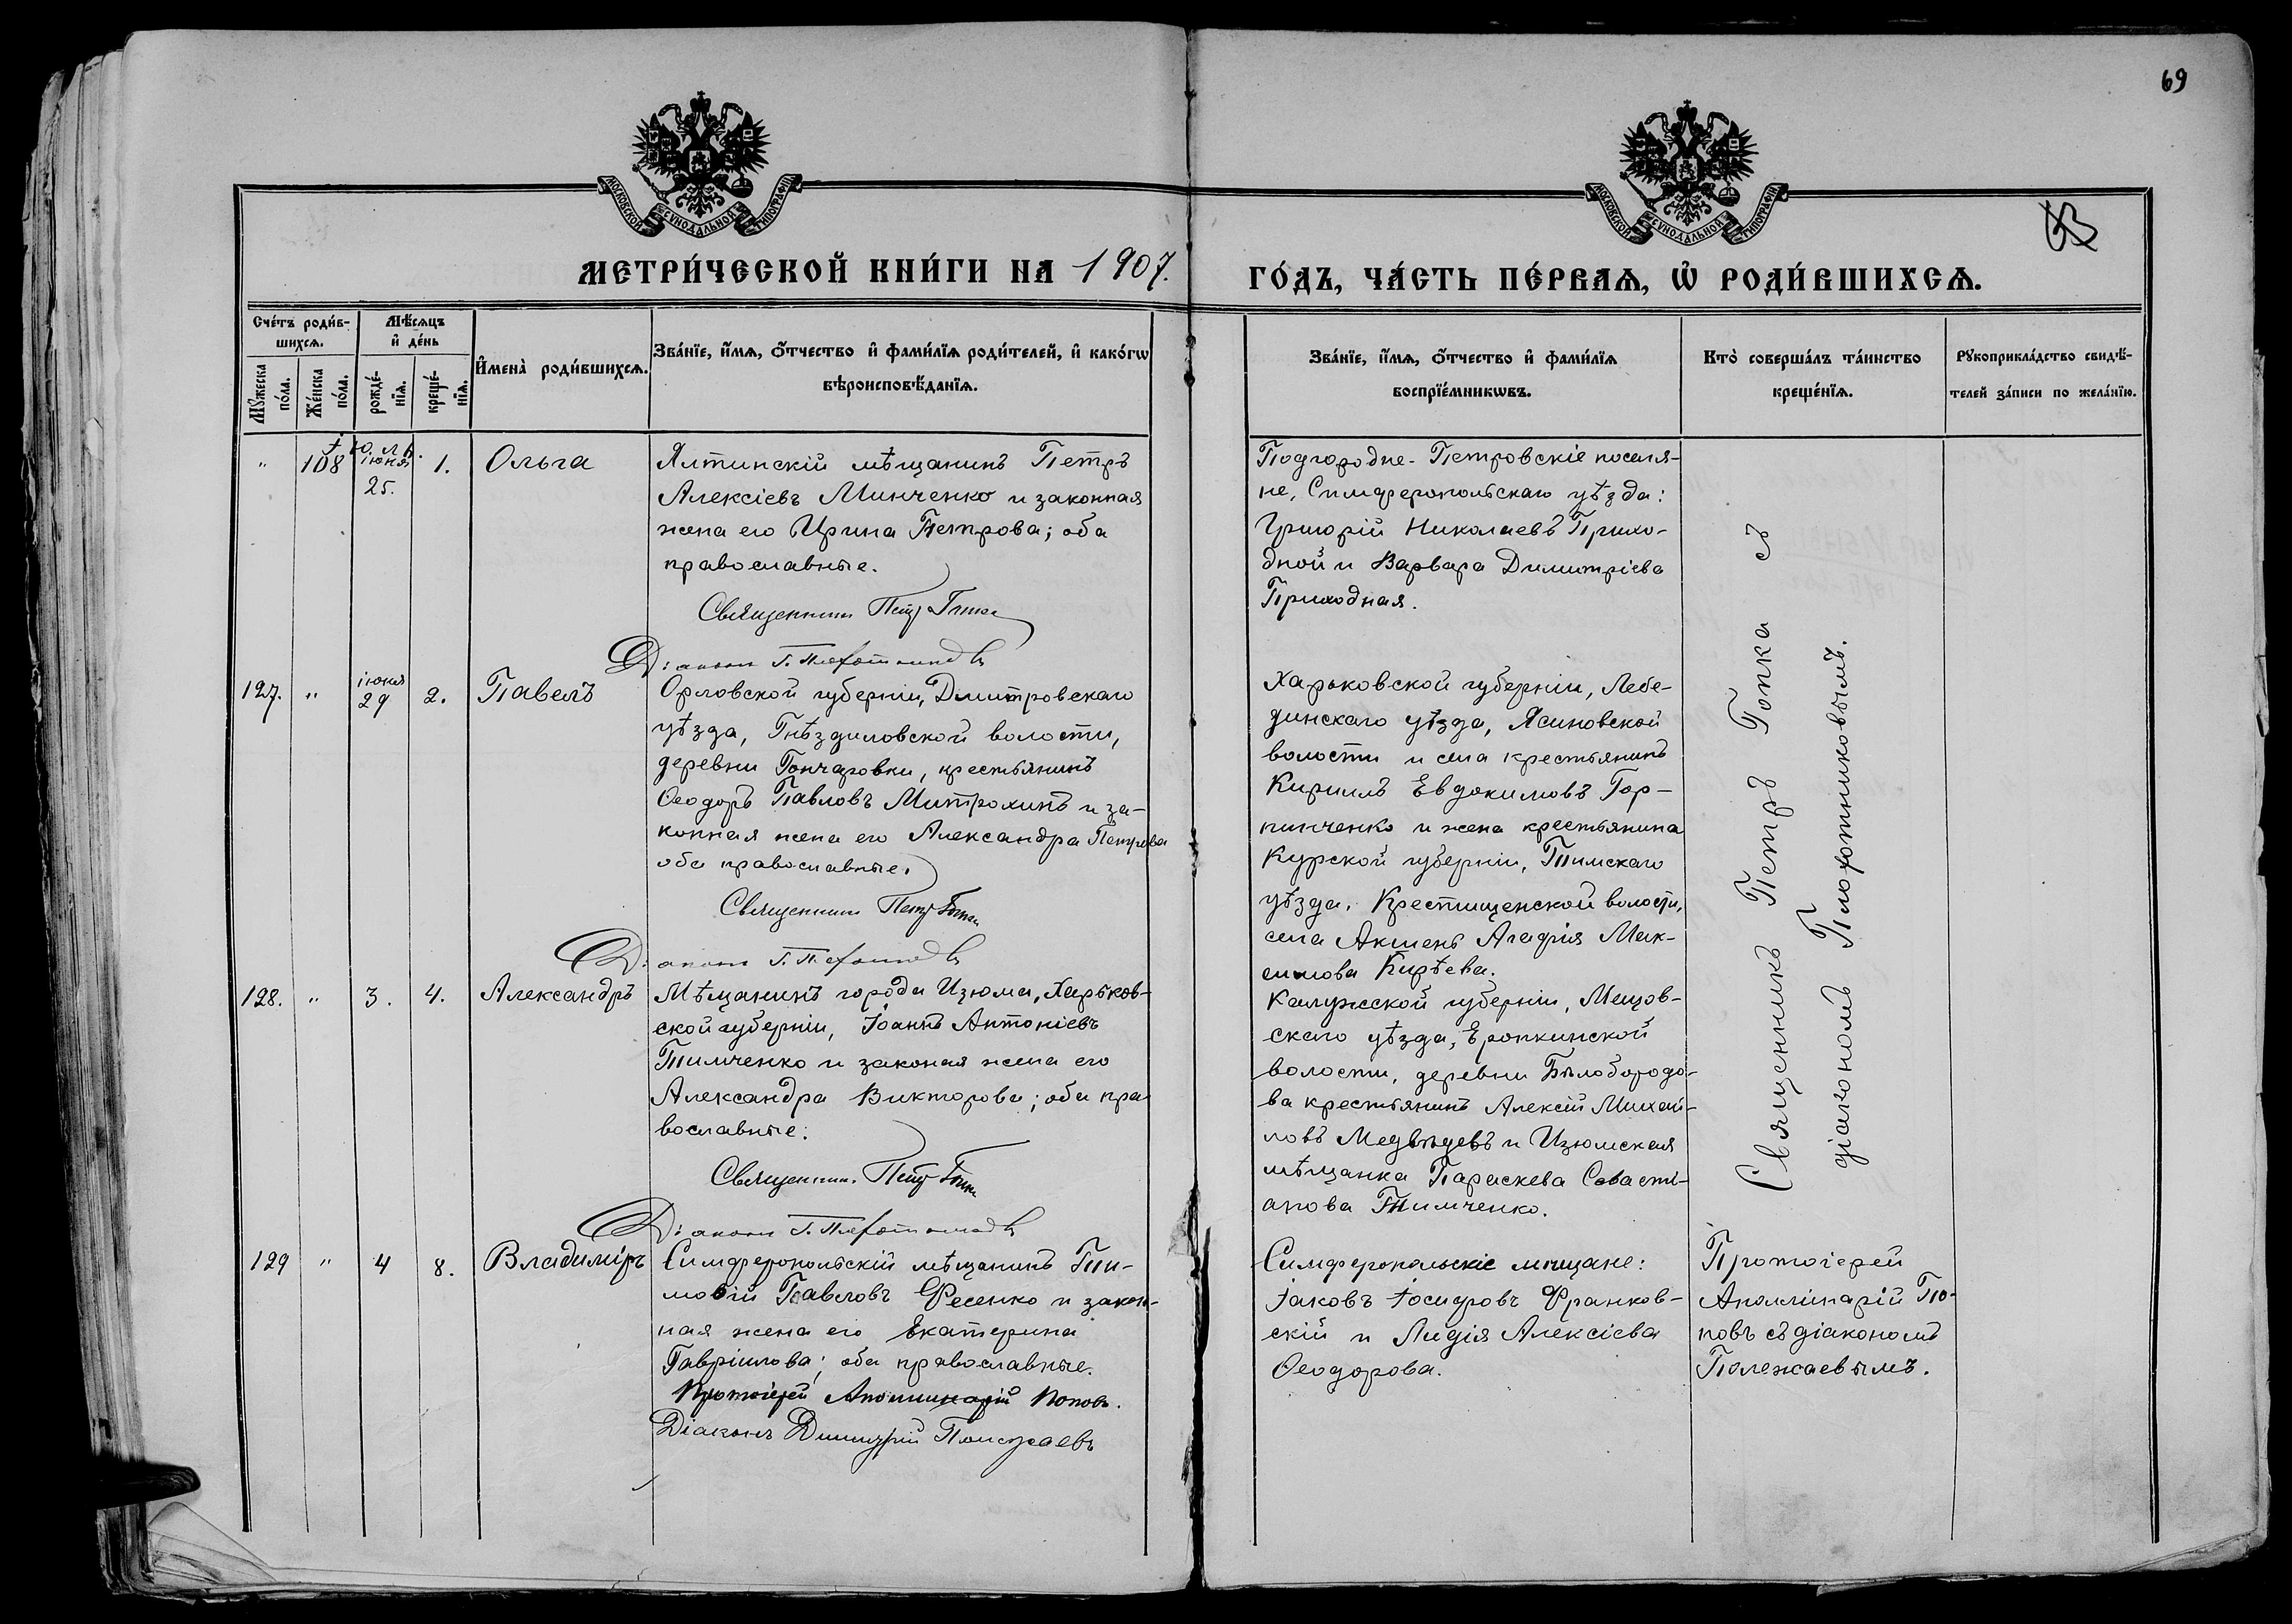 69
МОСКОВСКОЙ СѴНОДАЛЬНОЙ ТИПОГРАФІИ
МОСКОВСКОЙ СѴНОДАЛЬНОЙ ТИПОГРАФІИ
МЕТРИ́ЧЕСКОЙ КНИ́ГИ НА 1907.
ГО́ДЪ, ЧА́СТЬ ПЕ́РВАѦ, Ѡ҆ РОДИ́ВШИХСѦ.
Сче́тъ роди́в-
шихсѧ.
Мꙋжеска
по́ла.
Же́нска
по́ла.
Мѣ́сѧцъ
и҆ де́нь
рожде́-
нїѧ.
креще́-
нїѧ.
И҆мена̀ роди́вшихсѧ.
Зва́нїе, и҆́мѧ, ѻ҆́тчество и҆ фами́лїѧ роди́телей, и҆ како́гѡ
вѣроисповѣ́данїѧ.
Зва́нїе, и҆́мѧ, ѻ҆́тчество и҆ фами́лїѧ
воспрїе́мникѡвъ.
Кто̀ соверша́лъ та́инство
креще́нїѧ.
Рꙋкоприкла́дство свидѣ́-
телей за́писи по жела́нїю.
" 108 Іюль.
іюня
25. 1. Ольга
Ялтинскій мѣщанинъ Петръ
Алексіевъ Минченко и законная
жена его Ирина Петрова; оба
православные.
Священникъ Петръ Гопка
Діаконъ Г. Плотниковъ
Подгородне-Петровскіе поселя-
не, Симферопольскаго уѣзда:
Григорій Николаевъ Прихо-
дной и Варвара Димитріева
Приходная.
Священникъ Петръ Гопка съ
діакономъ Плотниковымъ.
127. " іюня
29 2. Павелъ
Орловской губерніи, Дмитровскаго
уѣзда, Гнѣздиловской волости,
деревни Гончаровки, крестьянинъ
Ѳеодоръ Павловъ Митрохинъ и за-
конная жена его Александра Петрова
оба православные.
Священникъ Петръ Гопка
Діаконъ Г. Плотниковъ
Харьковской губерніи, Лебе-
динскаго уѣзда, Ясиновской
волости и села крестьянинъ
Кириллъ Евдокимовъ Гор-
пинченко и жена крестьянина
Курской губерніи, Тимскаго
уѣзда, Крестищенской волости,
села Акшень Агафія Мак-
симова Кирѣева.
128. " 3. 4. Александръ
Мѣщанинъ города Изюма, Харьков-
ской губерніи, Іоаннъ Антоніевъ
Тимченко и законая жена его
Александра Викторова; оба пра-
вославные.
Священник. Петръ Гопка
Діаконъ Г. Плотниковъ
Калужской губерніи, Мещов-
скаго уѣзда, Еропкинской
волости, деревни Бѣлобородо-
ва крестьянинъ Алексій Михай-
ловъ Медвѣдевъ и Изюмская
мѣщанка Параскева Савасті-
анова Тимченко.
129 " 4 8. Владиміръ
Симферопольскій мѣщанинъ Ти-
моѳій Павловъ Фесенко и закон-
ная жена его Екатерина
Гавріилова; оба православные.
Протоіерей Аполлинарій Поповъ.
Діаконъ Димитрій Полежаевъ
Симферопольскіе мѣщане:
Іаковъ Іосифовъ Франков-
скій и Лидія Алексіева
Ѳеодорова.
Протоіерей
Аполлінарій По-
повъ съ діакономъ
Полежаевымъ.